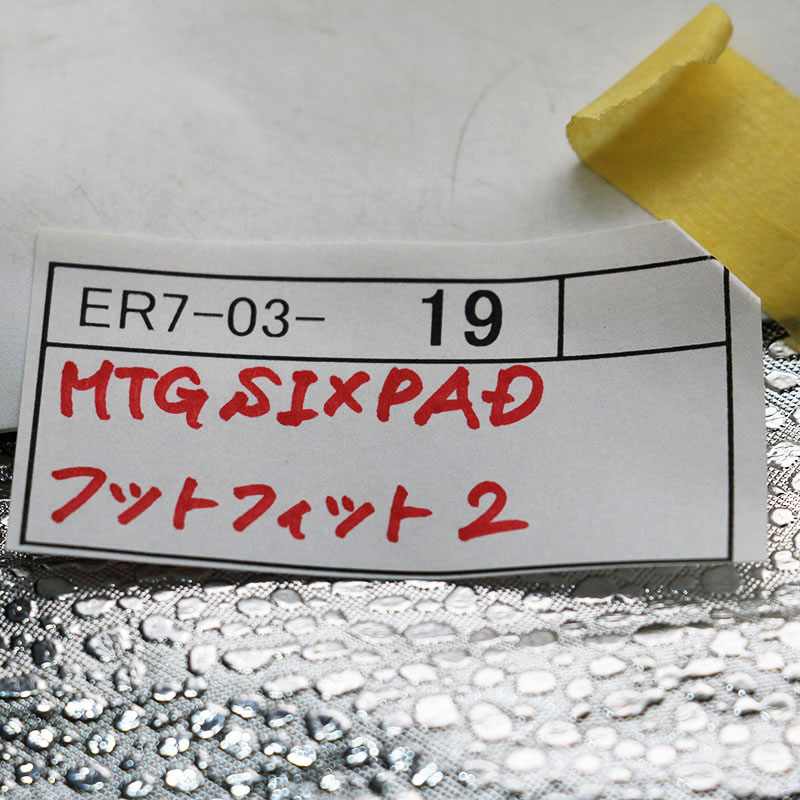 ER7-03- 19
MTG SIXPAD
フットフィット 2